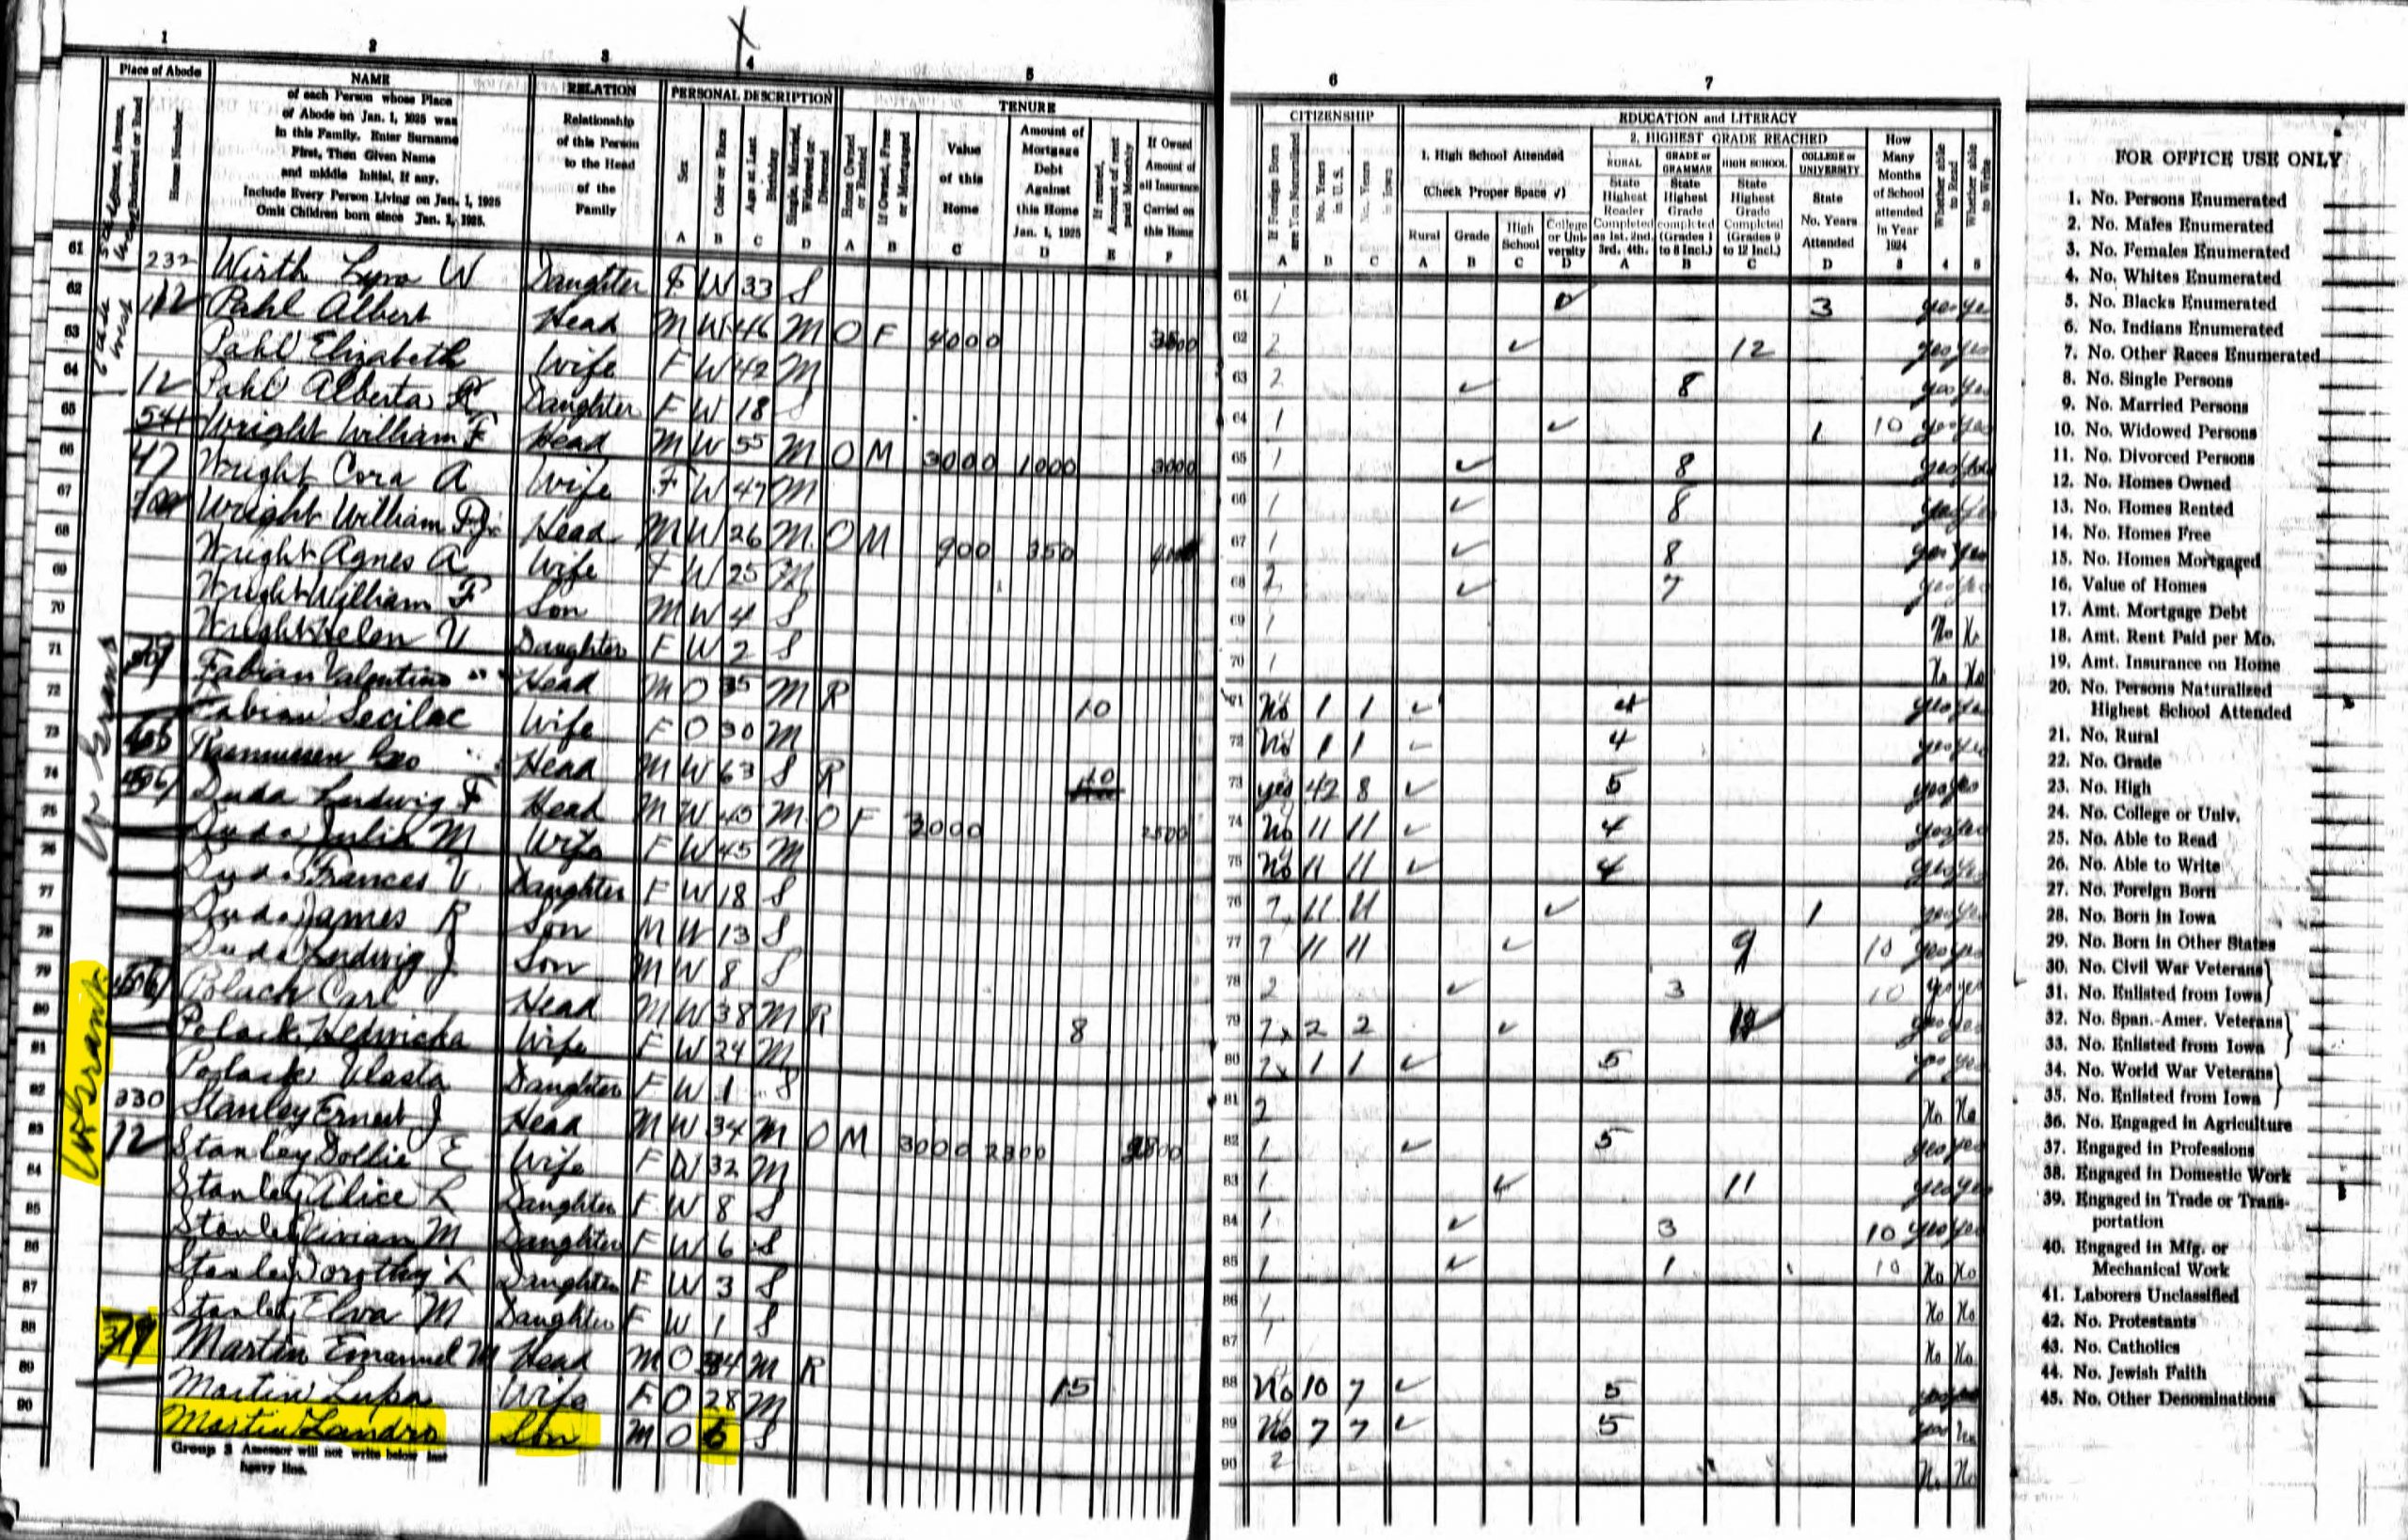 1 2 3 4 5
Place of Abode
Street, Avenue, Boulevard or Road
House Number
NAME
of each Person whose Place
of Abode on Jan. 1, 1925 was
in this Family. Enter Surname
First, Then Given Name
and middle Initial, if any.
Include Every Person Living on Jan. 1, 1925
Omit Children born since Jan. 1, 1925.
RELATION
Relationship
of this Person
to the Head
of the
Family
PERSONAL DESCRIPTION
Sex A
Color or Race B
Age at Last Birthday C
Single, Married, Widowed or Divorced D
TENURE
Home Owned or Rented A
If Owned, Free or Mortgaged B
Value of this Home C
Amount of Mortgage Debt Against this Home Jan. 1, 1925 D
If rented, Amount of rent paid Monthly E
If Owned Amount of all Insurance Carried on this Home F
61 232 Wirth Lyra W Daughter F W 33 S
62 112 Pahl Albert Head M W 46 M O F 4000 3500
63 Pahl Elizabeth Wife F W 42 M
64 12 Pahl Alberta R Daughter F W 18 S
65 Wright William F Head M W 55 M O M 3000 1000 3000
66 47 Wright Cora A Wife F W 47 M
67 Wright William F Jr Head M W 26 M O M 900 350
68 Wright Agnes A Wife F W 25 M
69 Wright William F Son M W 4 S
70 Wright Helen V Daughter F W 2 S
71 Fabian Valentino Head M O 35 M R 10
72 Fabian Secilac Wife F O 30 M
73 Rasmussen Geo Head M W 63 S R 10
74 Duda Ludwig F Head M W 45 M O F 3000 2500
75 Duda Julia M Wife F W 45 M
76 Duda Frances V Daughter F W 18 S
77 Duda James R Son M W 13 S
78 Duda Ludwig J Son M W 8 S
79 Polack Carl Head M W 38 M R 8
80 Polack Hedwicka Wife F W 24 M
81 Polack Vlasta Daughter F W 1 S
82 330 Stanley Ernest J Head M W 34 M O M 3000 2300
83 12 Stanley Dollie E Wife F W 32 M
84 Stanley Alice L Daughter F W 8 S
85 Stanley Vivian M Daughter F W 6 S
86 Stanley Dorothy L Daughter F W 3 S
87 Stanley Elva M Daughter F W 1 S
88 Martin Emanuel M Head M O 34 M R 15
89 Martin Lupa Wife F O 28 M
90 Martin Landro Son M O 6 S
W Grant
W Grant
Group 3 Assessor will not write below last
heavy line.
6 7
CITIZENSHIP
If Foreign Born are You Naturalized A
No. Years in U.S. B
No. Years in Iowa C
EDUCATION and LITERACY
1. High School Attended
(Check Proper Space √)
Rural A
Grade B
High School C
College or University D
2. HIGHEST GRADE REACHED
RURAL State Highest Reader Completed as 1st. 2nd. 3rd. 4th. A
GRADE or GRAMMAR State Highest Grade completed (Grades 1 to 8 Incl.) B
HIGH SCHOOL State Highest Grade Completed (Grades 9 to 12 Incl.) C
COLLEGE or UNIVERSITY State No. Years Attended D
How Many Months of School attended in Year 1924 3
Whether able to Read 4
Whether able to Write 5
61 1 √ 3 yes yes
62 2 √ 12 yes yes
63 2 √ 8 yes yes
64 1 √ 1 10 yes yes
65 1 √ 8 yes yes
66 1 √ 8 yes yes
67 1 √ 8 yes yes
68 2 √ 7 yes yes
69 1 No No
70 1 No No
71 No 1 1 √ 4 yes yes
72 No 1 1 √ 4 yes yes
73 yes 42 8 √ 5 yes yes
74 No 11 11 √ 4 yes yes
75 No 11 11 √ 4 yes yes
76 11 11 √ 1 yes yes
77 11 11 √ 9 10 yes yes
78 2 √ 3 10 yes yes
79 2 2 √ yes yes
80 1 1 √ 5 yes yes
81 2 No No
82 1 √ 5 yes yes
83 1 √ 11 yes yes
84 1 √ 3 10 yes yes
85 1 √ 1 10 No No
86 1 No No
87 1 No No
88 No 10 7 √ 5
89 No 7 7 √ 5 yes
90 2 No No
FOR OFFICE USE ONLY
1. No. Persons Enumerated
2. No. Males Enumerated
3. No. Females Enumerated
4. No. Whites Enumerated
5. No. Blacks Enumerated
6. No. Indians Enumerated
7. No. Other Races Enumerated
8. No. Single Persons
9. No. Married Persons
10. No. Widowed Persons
11. No. Divorced Persons
12. No. Homes Owned
13. No. Homes Rented
14. No. Homes Free
15. No. Homes Mortgaged
16. Value of Homes
17. Amt. Mortgage Debt
18. Amt. Rent Paid per Mo.
19. Amt. Insurance on Home
20. No. Persons Naturalized
Highest School Attended
21. No. Rural
22. No. Grade
23. No. High
24. No. College or Univ.
25. No. Able to Read
26. No. Able to Write
27. No. Foreign Born
28. No. Born in Iowa
29. No. Born in Other States
30. No. Civil War Veterans
31. No. Enlisted from Iowa
32. No. Span.-Amer. Veterans
33. No. Enlisted from Iowa
34. No. World War Veterans
35. No. Enlisted from Iowa
36. No. Engaged in Agriculture
37. Engaged in Professions
38. Engaged in Domestic Work
39. Engaged in Trade or Trans-
portation
40. Engaged in Mfg. or
Mechanical Work
41. Laborers Unclassified
42. No. Protestants
43. No. Catholics
44. No. Jewish Faith
45. No. Other Denominations